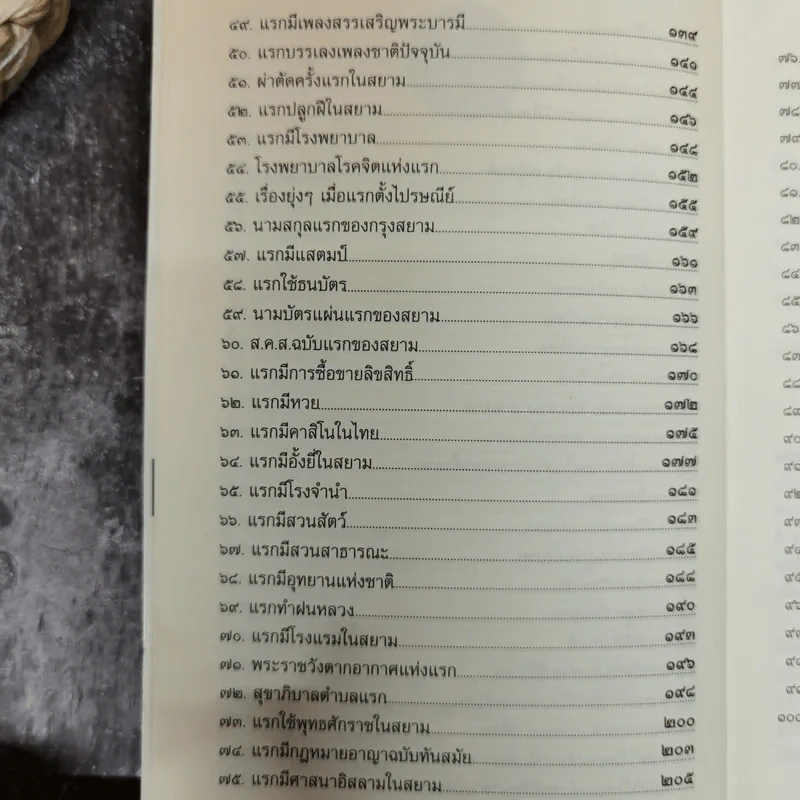 ๔๙. แรกมีเพลงสรรเสริญพระบารมี ๑๓๙
๕๐. แรกบรรเลงเพลงชาติปัจจุบัน ๑๔๑
๕๑. ผ่าตัดครั้งแรกในสยาม ๑๔๔
๕๒. แรกปลูกฝีในสยาม ๑๔๖
๕๓. แรกมีโรงพยาบาล ๑๔๘
๕๔. โรงพยาบาลโรคจิตแห่งแรก ๑๕๒
๕๕. เรื่องยุ่งๆ เมื่อแรกตั้งไปรษณีย์ ๑๕๕
๕๖. นามสกุลแรกของกรุงสยาม ๑๕๙
๕๗. แรกมีแสตมป์ ๑๖๑
๕๘. แรกใช้ธนบัตร ๑๖๓
๕๙. นามบัตรแผ่นแรกของสยาม ๑๖๖
๖๐. ส.ค.ส.ฉบับแรกของสยาม ๑๖๘
๖๑. แรกมีการซื้อขายลิขสิทธิ์ ๑๗๐
๖๒. แรกมีหวย ๑๗๒
๖๓. แรกมีคาสิโนในไทย ๑๗๕
๖๔. แรกมีอั้งยี่ในสยาม ๑๗๗
๖๕. แรกมีโรงจำนำ ๑๘๑
๖๖. แรกมีสวนสัตว์ ๑๘๓
๖๗. แรกมีสวนสาธารณะ ๑๘๕
๖๘. แรกมีอุทยานแห่งชาติ ๑๘๘
๖๙. แรกทำฝนหลวง ๑๙๐
๗๐. แรกมีโรงแรมในสยาม ๑๙๓
๗๑. พระราชวังตากอากาศแห่งแรก ๑๙๖
๗๒. สุขาภิบาลตำบลแรก ๑๙๘
๗๓. แรกใช้พุทธศักราชในสยาม ๒๐๐
๗๔. แรกมีกฎหมายอาญาฉบับทันสมัย ๒๐๓
๗๕. แรกมีศาสนาอิสลามในสยาม ๒๐๕
๗๖.
๗๗.
๗๘
๗๙
๘๐.
๘๑.
๘๒
๘๓
๘๔
๘๕
๘๖
๘๗
๘๘
๘๙
๙๐
๙๑
๙๒
๙๓
๙๔
๙๕
๙๖
๙๗
๙๘
๙๙
๑๐๐